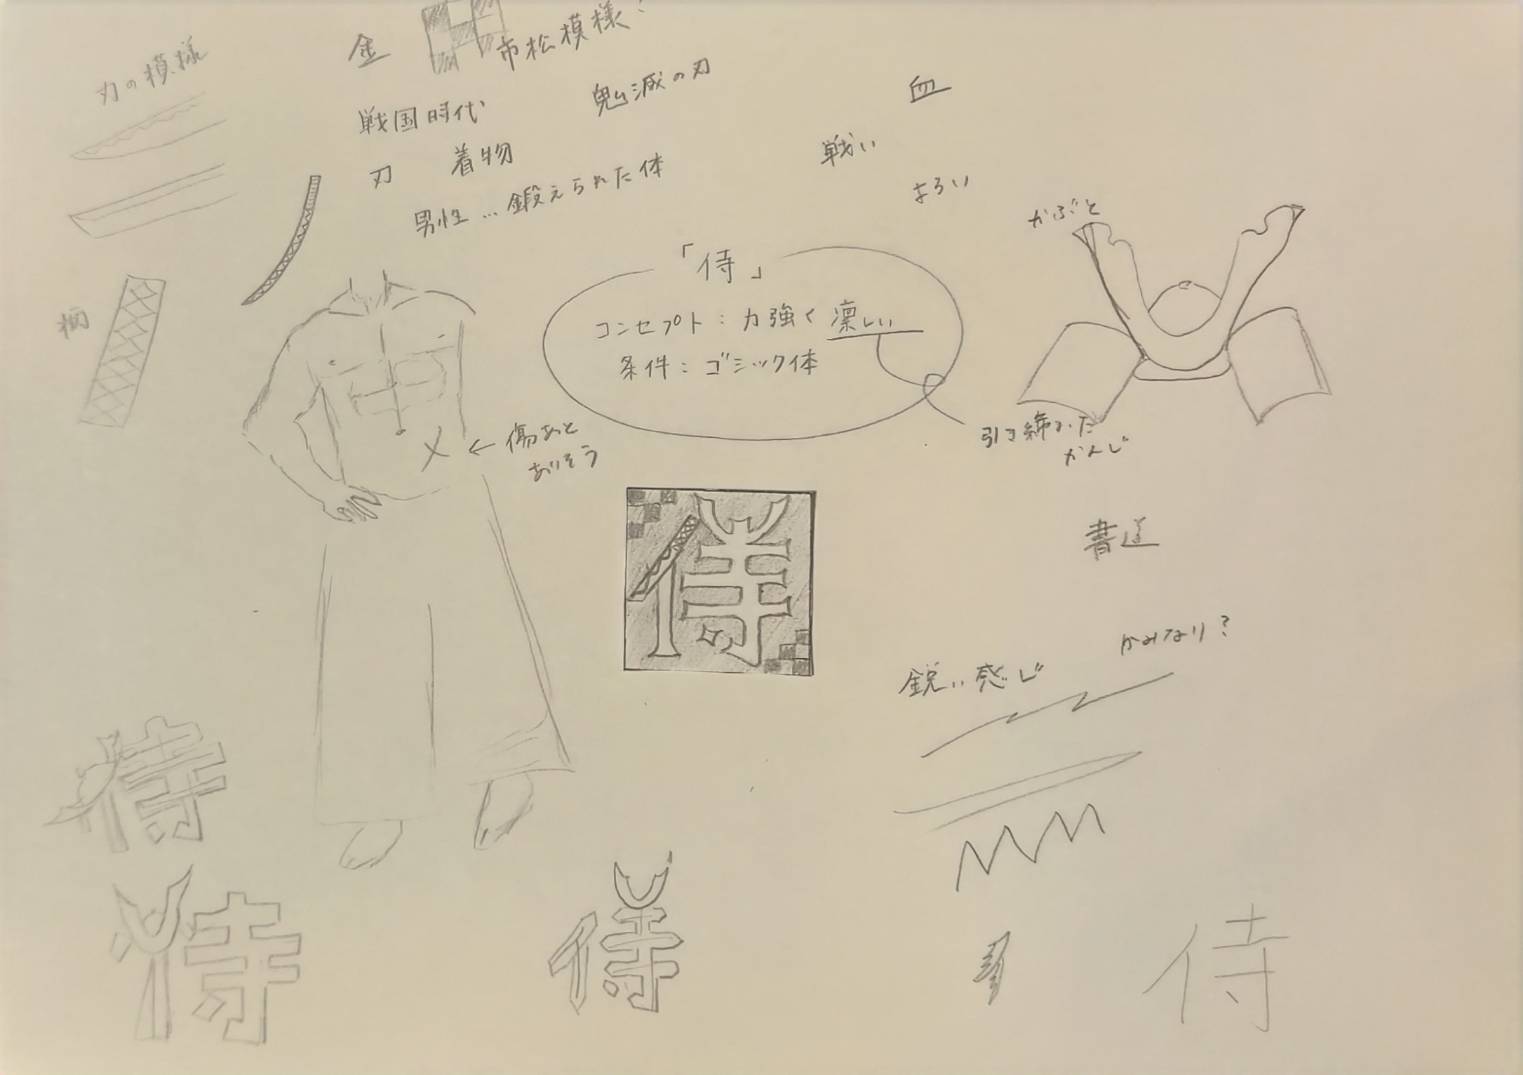 刃の模様
金
市松模様?
戦国時代
鬼滅の刃
血
刃
着物
戦い
男性…鍛えられた体
よろい
かぶと
柄
「侍」
コンセプト:力強く凛しい
条件:ゴシック体
引き締めった
かんじ
←傷あと
ありそう
侍
書道
かみなり?
鋭い感じ
侍
侍
侍
侍